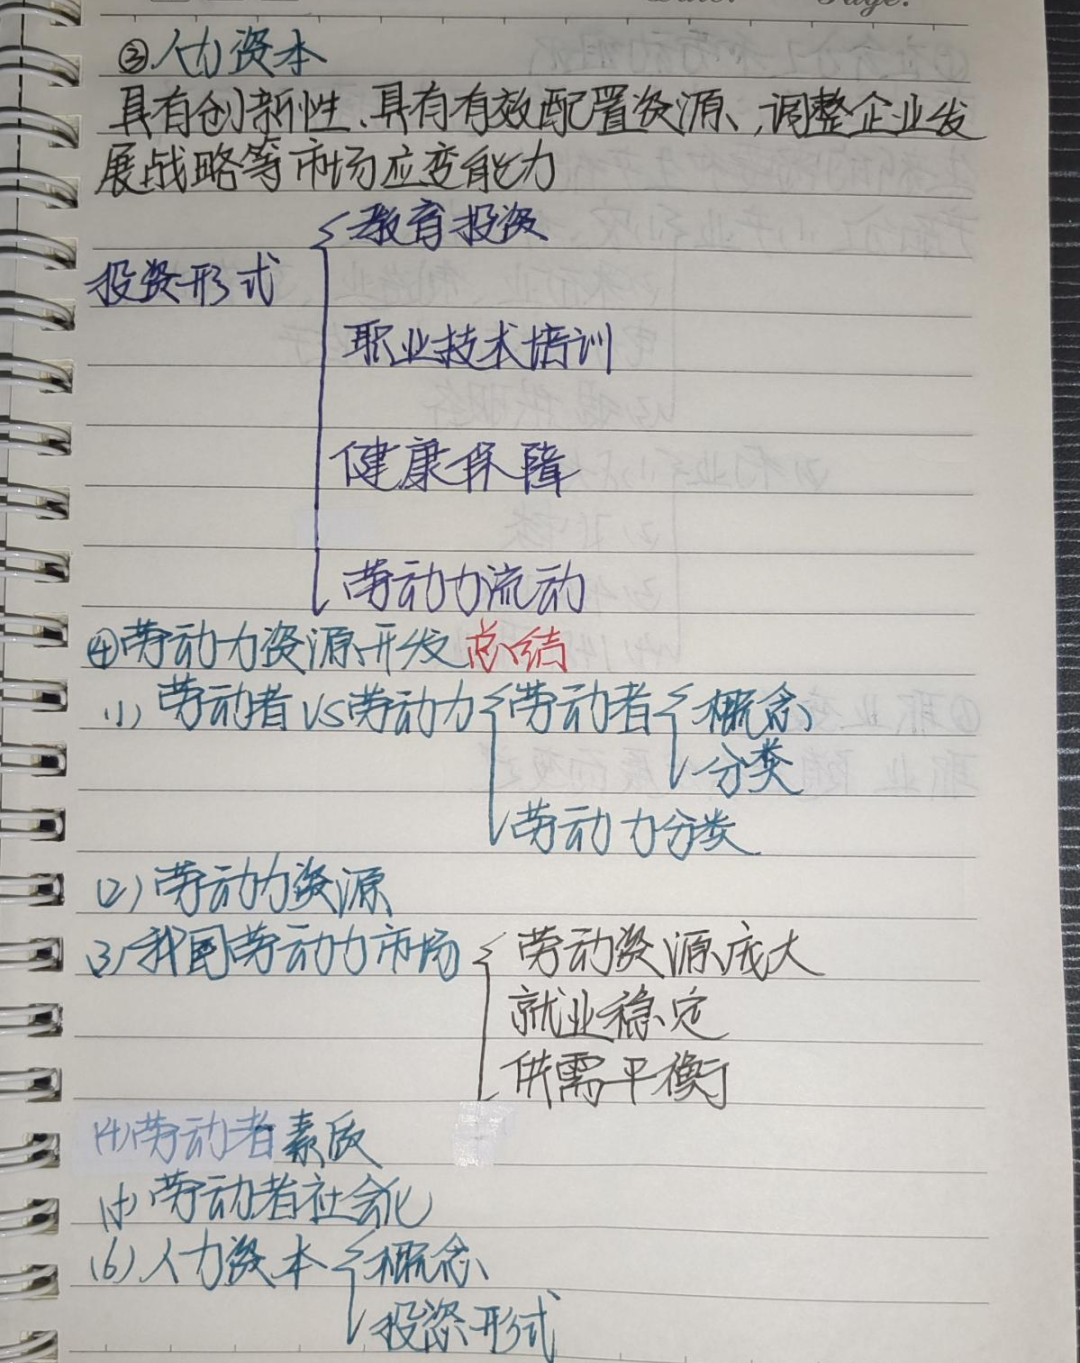 ③人力资本
具有创新性、具有有效配置资源、调整企业发
展战略等市场应变能力
教育投资
投资形式
职业技术培训
健康保障
劳动力流动
④劳动力资源开发总结
(1)劳动者VS劳动力 劳动者 概念
分类
劳动力分类
(2)劳动力资源
(3)我国劳动力市场 劳动资源庞大
就业稳定
供需平衡
(4)劳动者素质
(5)劳动者社会化
(6)人力资本 概念
投资形式